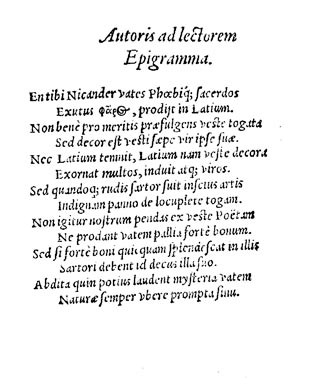 Autoris ad lectorem
Epigramma.
En tibi Nicander vates Phœbiq́; sacerdos
Exutus φᾶρος, prodijt in Latium.
Non benè pro meritis præfulgens veste togata
Sed decor est vesti sæpe vir ipse suæ.
Nec Latium temnit, Latium nam veste decora
Exornat multos, induit atq; viros.
Sed quandoq; rudis sartor suit inscius artis
Indignam panno de locuplete togam.
Non igitur nostrum pendas ex veste Poëtam
Ne prodant vatem pallia fortè bonum.
Sed si fortè boni quicquam splendescat in illis
Sartori debent id decus illa suo.
Abdita quin potius laudent mysteria vatem
Naturæ semper vbere prompta sinu.